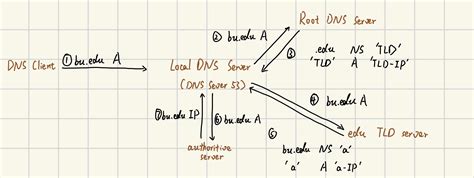 Root DNS Server
② bu.edu A
③ .edu NS 'TLD'
'TLD' A 'TLD-IP'
DNS Client
① bu.edu A
Local DNS Server
(DNS Sever 53)
④ bu.edu A
⑦ bu.edu IP
⑥ bu.edu A
edu TLD server
⑤ bu.edu NS 'a'
'a' A 'a-IP'
authoritive
server